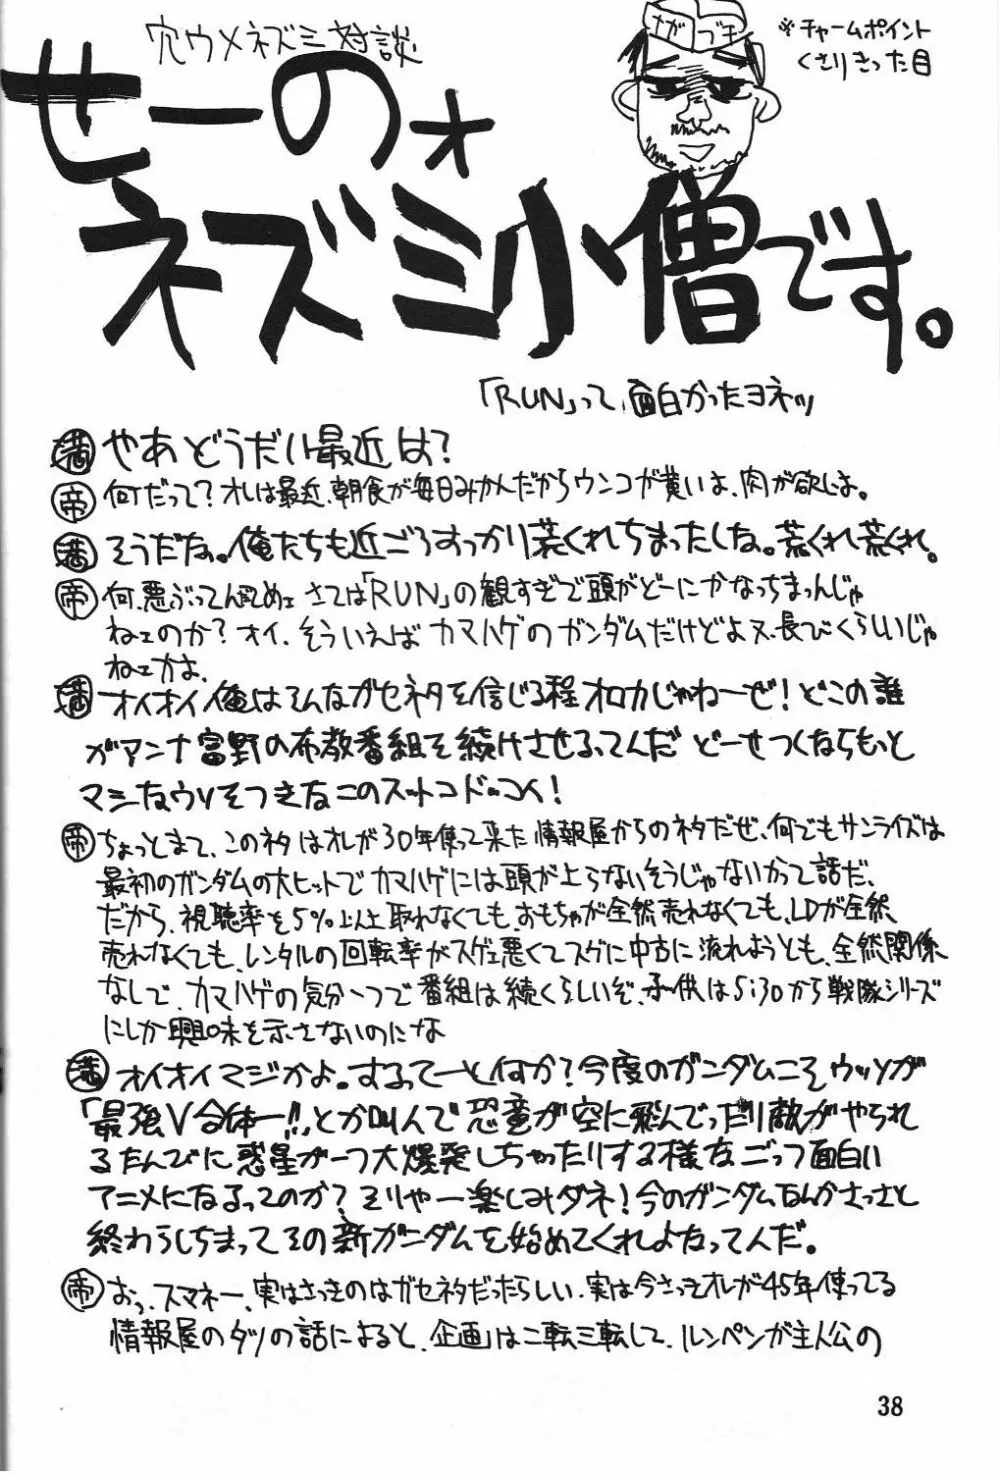 穴ウメネズミ対談
※チャームポイント
くさりきった目
せーのォ
ネズミ小僧です。
「RUN」って、面白かったヨネッ
満 やあ どうだい最近は?
帝 何だって? オレは最近、朝食が毎日みかんだからウンコが黄いよ、肉が欲しいよ。
満 そうだな。俺たちも近ごろすっかり荒くれちまったしな。荒くれ荒くれ。
帝 何、悪ぶってんだてめェ さては「RUN」の観すぎで頭がどーにかなっちまったんじゃ
ねェのか? オイ、そういえば カマハゲのガンダムだけどよ又、長びくらしいじゃ
ねェかよ。
満 オイオイ俺はそんなガセネタを信じる程オロカじゃねーぜ! どこの誰
がアンナ富野の布教番組を続けさせるってんだ どーせつくならもっと
マシなウソをつきなこのスットコドッコイ!
帝 ちょっとまて、このネタはオレが30年使って来た情報屋からのネタだぜ、何でもサンライズは
最初のガンダムの大ヒットでカマハゲには頭が上らないそうじゃないかって話だ、
だから、視聴率を5%以上取れなくても、おもちゃが全然売れなくても、LDが全然、
売れなくても、レンタルの回転率がスゲェ悪くてスグに中古に流れようとも、全然関係
なしで、カマハゲの気分一つで番組は続くらしいぞ、子供は5:30から戦隊シリーズ
にしか興味を示さないのにな
満 オイオイマジかよ。するってーと何か? 今度のガンダムこそウッソが
「最強V合体ー!!」とか叫んで恐竜が空に飛んでったり敵がやられ
るたんびに惑星が一つ大爆発しちゃったりする様なごっつ面白い
アニメになるってのか? そりゃー楽しみダネ! 今のガンダムなんかさっさと
終わらしちまってその新ガンダムを始めてくれよなってんだ。
帝 おっ、スマネー、実はさっきのはガセネタだったらしい、実は今さっきオレが45年使ってる
情報屋のダツの話によると、企画は二転三転して、ルンペンが主人公の
38